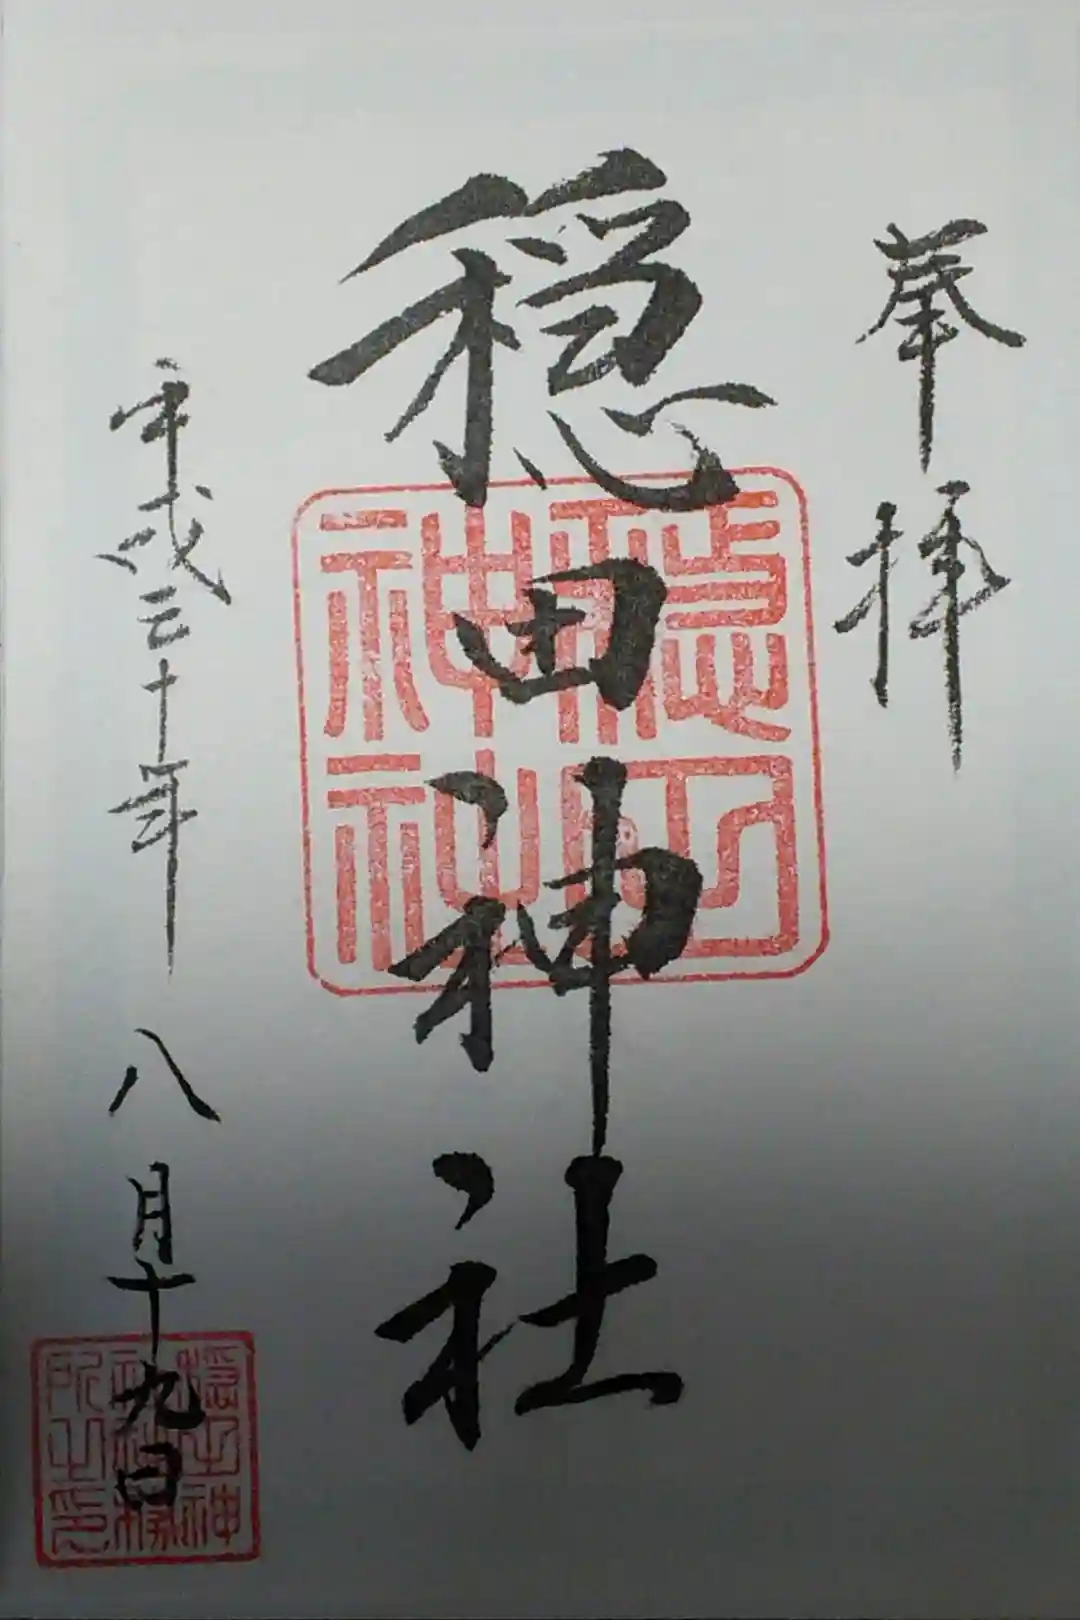 奉拝
穏田神社
平成三十年 八月十九日
穏田神社
穏田神社務所之印